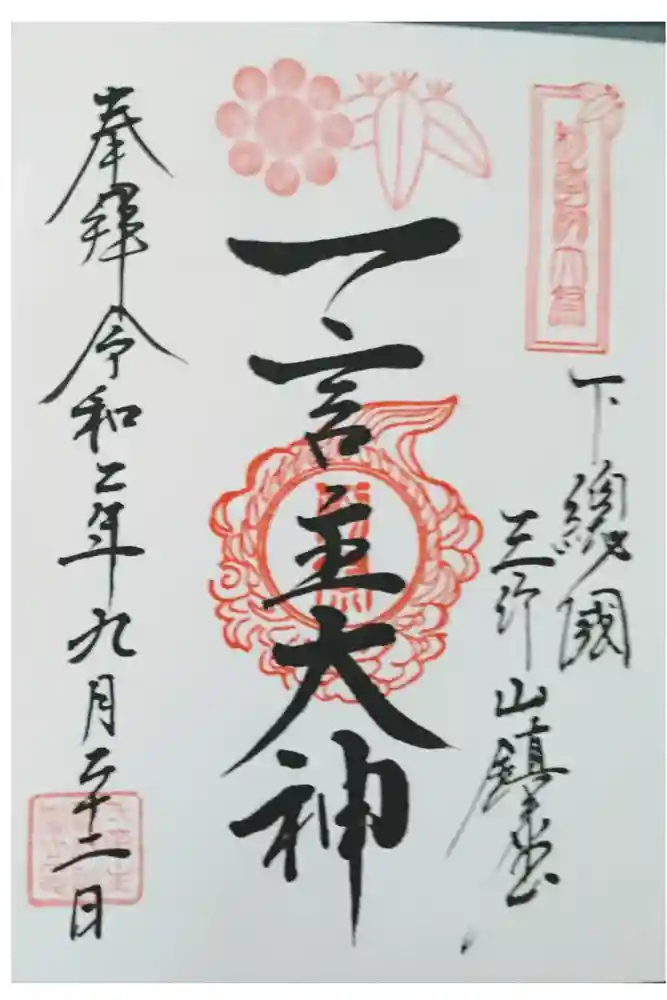 下總國
三竹山鎮座
一言主大神
奉拜 令和二年九月二十二日